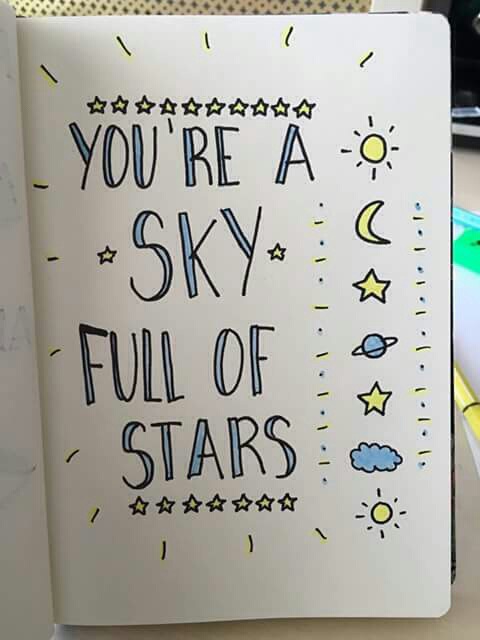 YOU'RE A
SKY
FULL OF
STARS